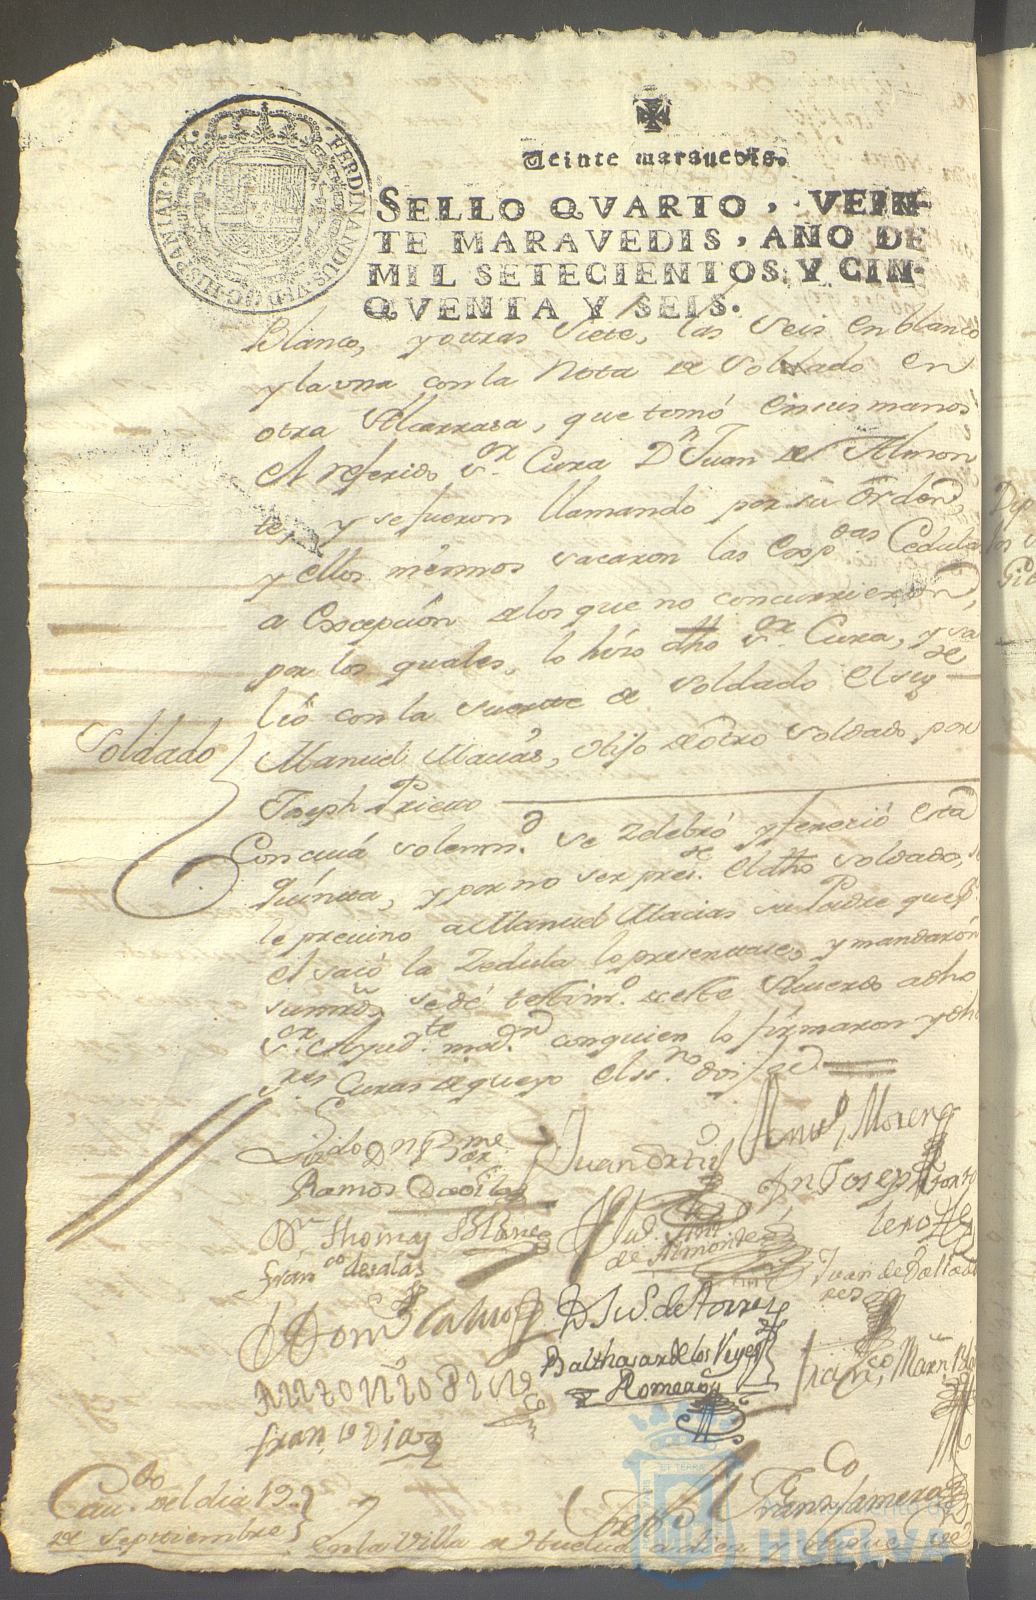 FERDINANDUS VI D G HISPANIAR REX
Veinte maravedis.
SELLO QVARTO, VEIN-
TE MARAVEDIS, AÑO DE
MIL SETECIENTOS, Y CIN-
QVENTA Y SEIS.
Blanco, y otras Siete, las Seis en blanco
y la una con la Nota de Soldado en
otra Alcarrasa, que tomó en sus manos
el referido Sor Cura Dn Juan de Almon
te, y se fueron llamando por su Orden,
y ellos mismos sacaron las Cedulas
a Excepción de los que no concurrieron,
por los quales, lo hizo dho Sor Cura, y sa
lió con la Suerte de Soldado el sigte
Soldado
Manuel Macias, hijo de otro Soldado por
Joseph Prieto
Con cuia solemnd se Zelebró y feneció esta
Quinta, y por no ser presste el dho Soldado, se
le previno a Manuel Macias su Padre que
el sacó la Zedula lo presentase, y mandaron
sus mrds se dé testimo de este Acuerdo a dho
Sor Ayudte con quien lo firmaron y dhos
Sres Curas de que yo el ssno doi fee
Lizdo Dn
Ramos Davila
Juan Ortiz
Manl Moreno
Dn Joseph
Dn Thomas Blanco
de Almonte
Franco de Salas
Juan de
Domo Calvo
D Ju. de Torres
Balthasar de los Reyes
Romero
Franco Marn
Antonio Pine
Franco Diaz
Cavdo del dia 19
de Septiembre
En la Villa de Huelva a diez y Nueve de
Ayuntamiento de
HUELVA